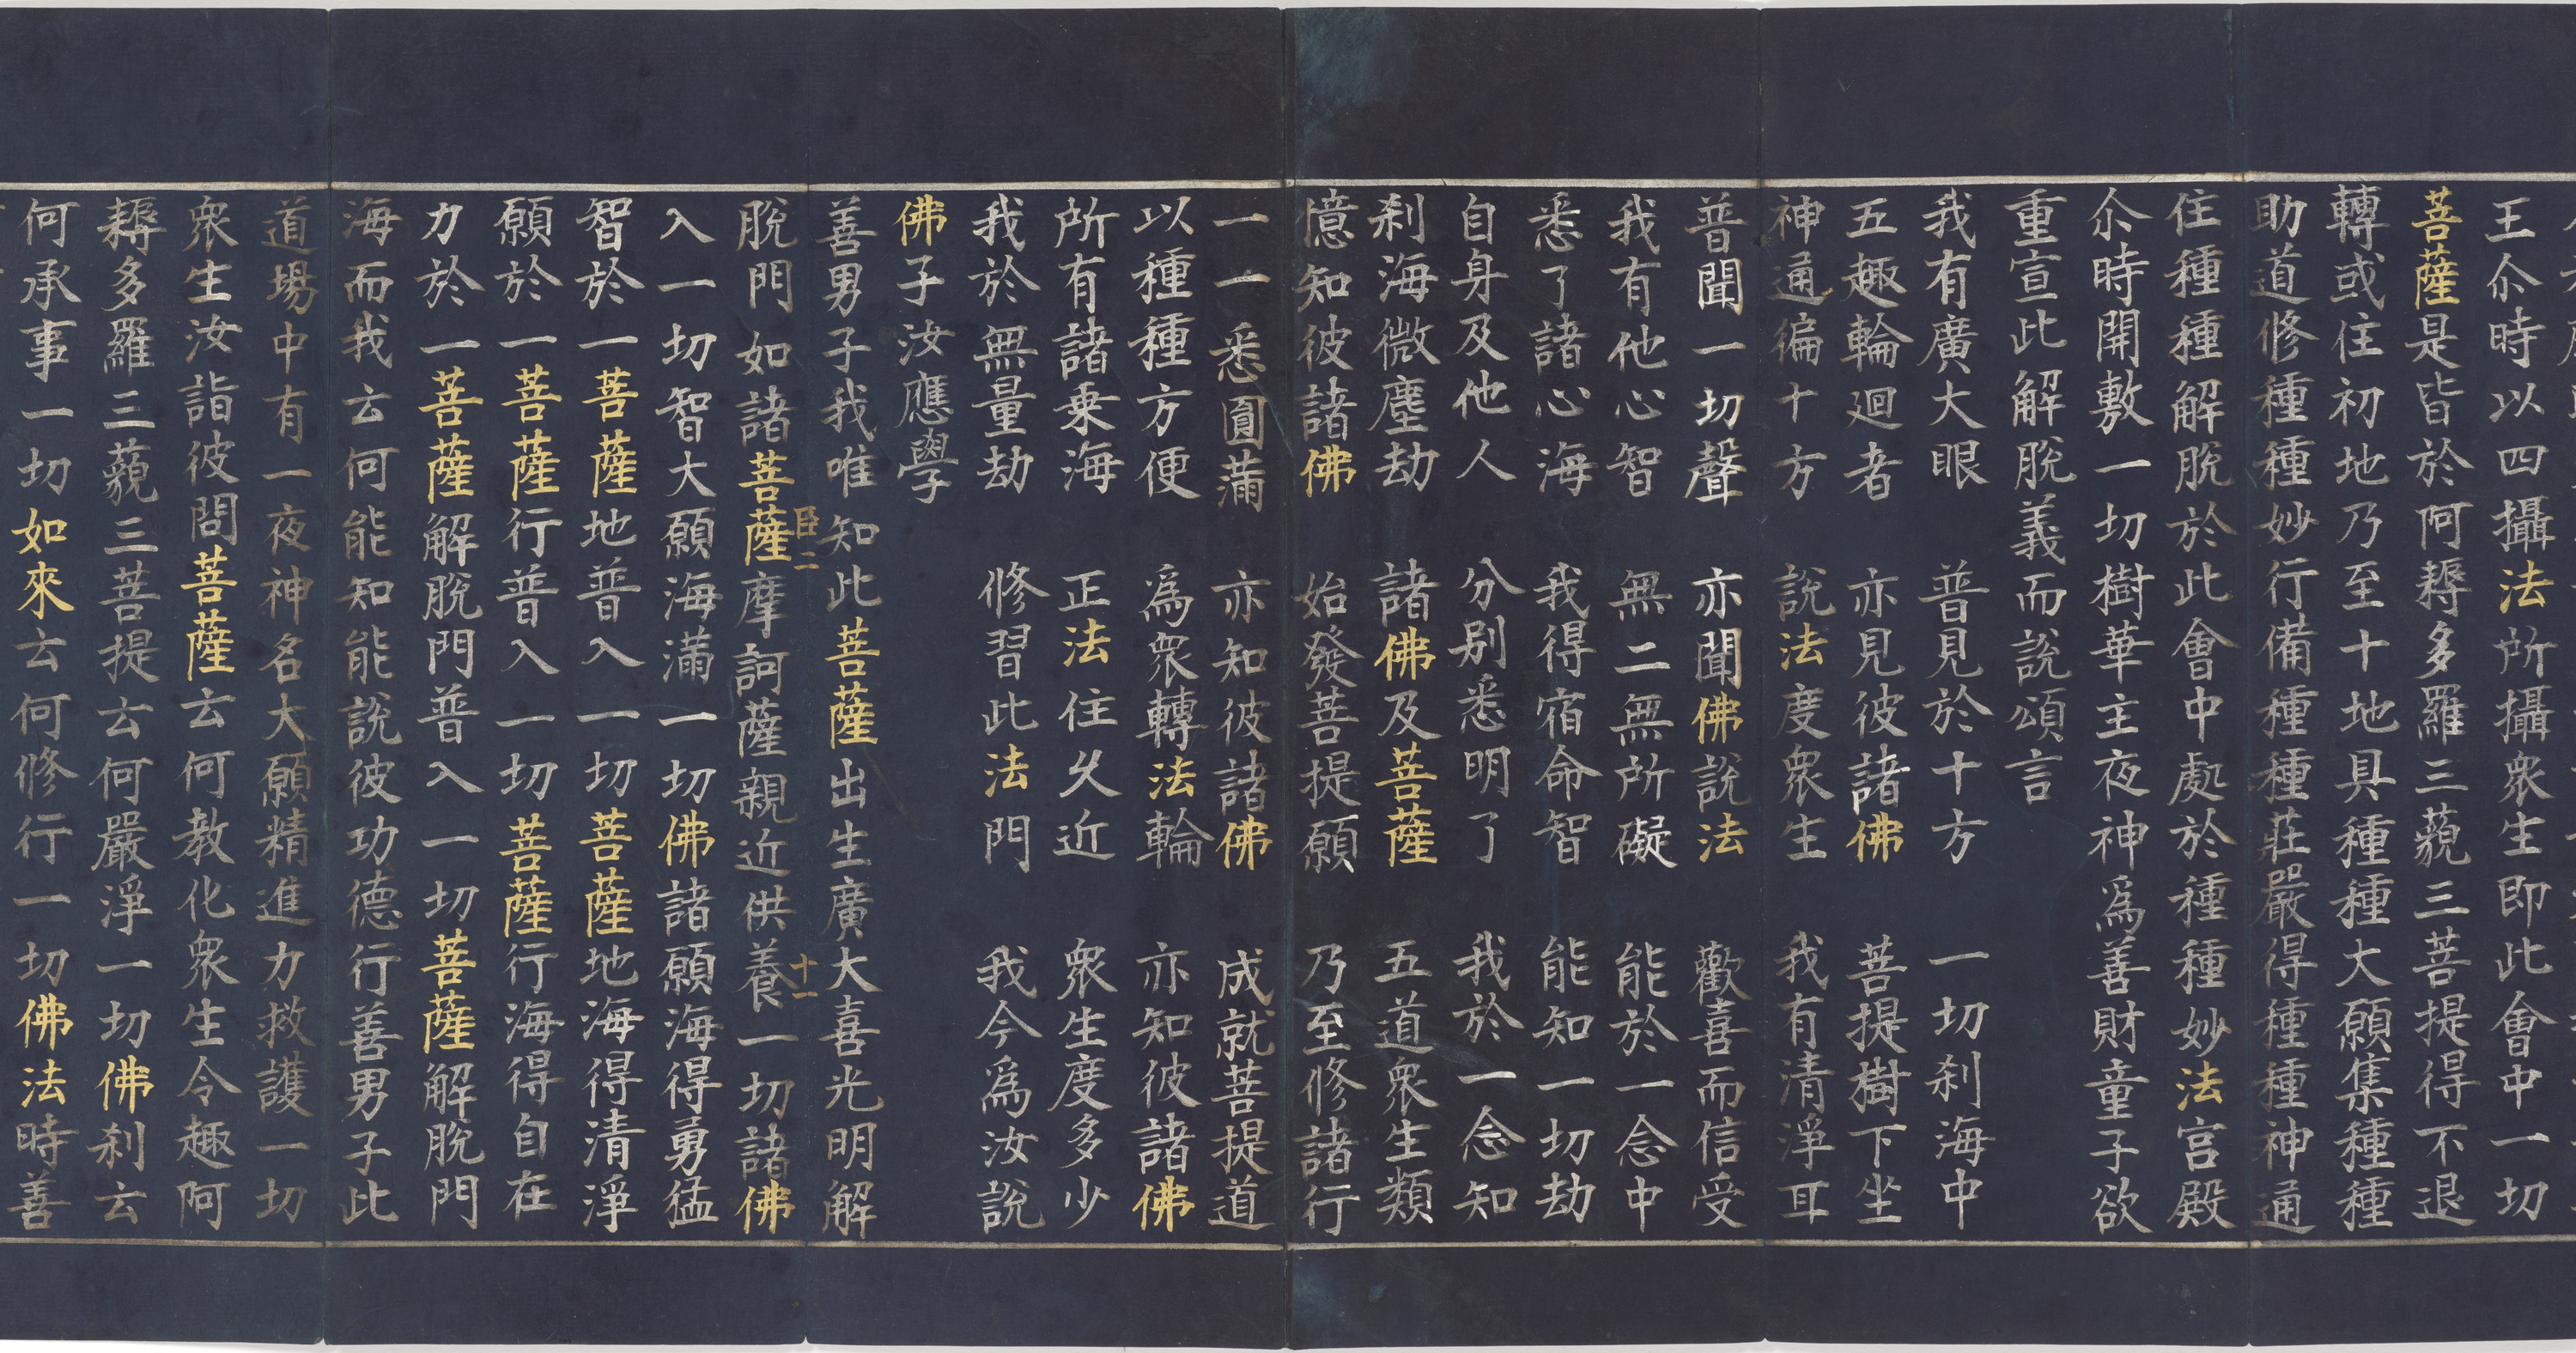 王尒時以四攝法所攝衆生即此會中一切
菩薩是皆於阿耨多羅三藐三菩提得不退
轉或住初地乃至十地具種種大願集種種
助道修種種妙行備種種莊嚴得種種神通
住種種解脫於此會中處於種種妙法宮殿
尒時開敷一切樹華主夜神爲善財童子欲
重宣此解脫義而說頌言
我有廣大眼　普見於十方　一切刹海中
五趣輪廻者　亦見彼諸佛　菩提樹下坐
神通徧十方　說法度衆生　我有清淨耳
普聞一切聲　亦聞佛說法　歡喜而信受
我有他心智　無二無所礙　能於一念中
悉了諸心海　我得宿命智　能知一切劫
自身及他人　分別悉明了　我於一念知
刹海微塵劫　諸佛及菩薩　五道衆生類
憶知彼諸佛　始發菩提願　乃至修諸行
一一悉圓滿　亦知彼諸佛　成就菩提道
以種種方便　爲衆轉法輪　亦知彼諸佛
所有諸乗海　正法住久近　衆生度多少
我於無量劫　修習此法門　我今爲汝說
佛子汝應學
善男子我唯知此菩薩出生廣大喜光明解
臣二　十一
脫門如諸菩薩摩訶薩親近供養一切諸佛
入一切智大願海滿一切佛諸願海得勇猛
智於一菩薩地普入一切菩薩地海得清淨
願於一菩薩行普入一切菩薩行海得自在
力於一菩薩解脫門普入一切菩薩解脫門
海而我云何能知能說彼功德行善男子此
道場中有一夜神名大願精進力救護一切
衆生汝詣彼問菩薩云何教化衆生令趣阿
耨多羅三藐三菩提云何嚴淨一切佛刹云
何承事一切如來云何修行一切佛法時善